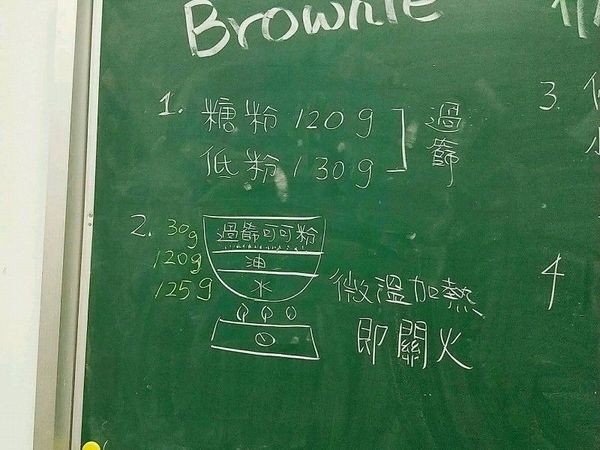 Brownie
1. 糖粉 120g
低粉 130g
過篩
2. 30g 過篩可可粉
120g 油
125g 水
微溫加熱
即關火
3.
4